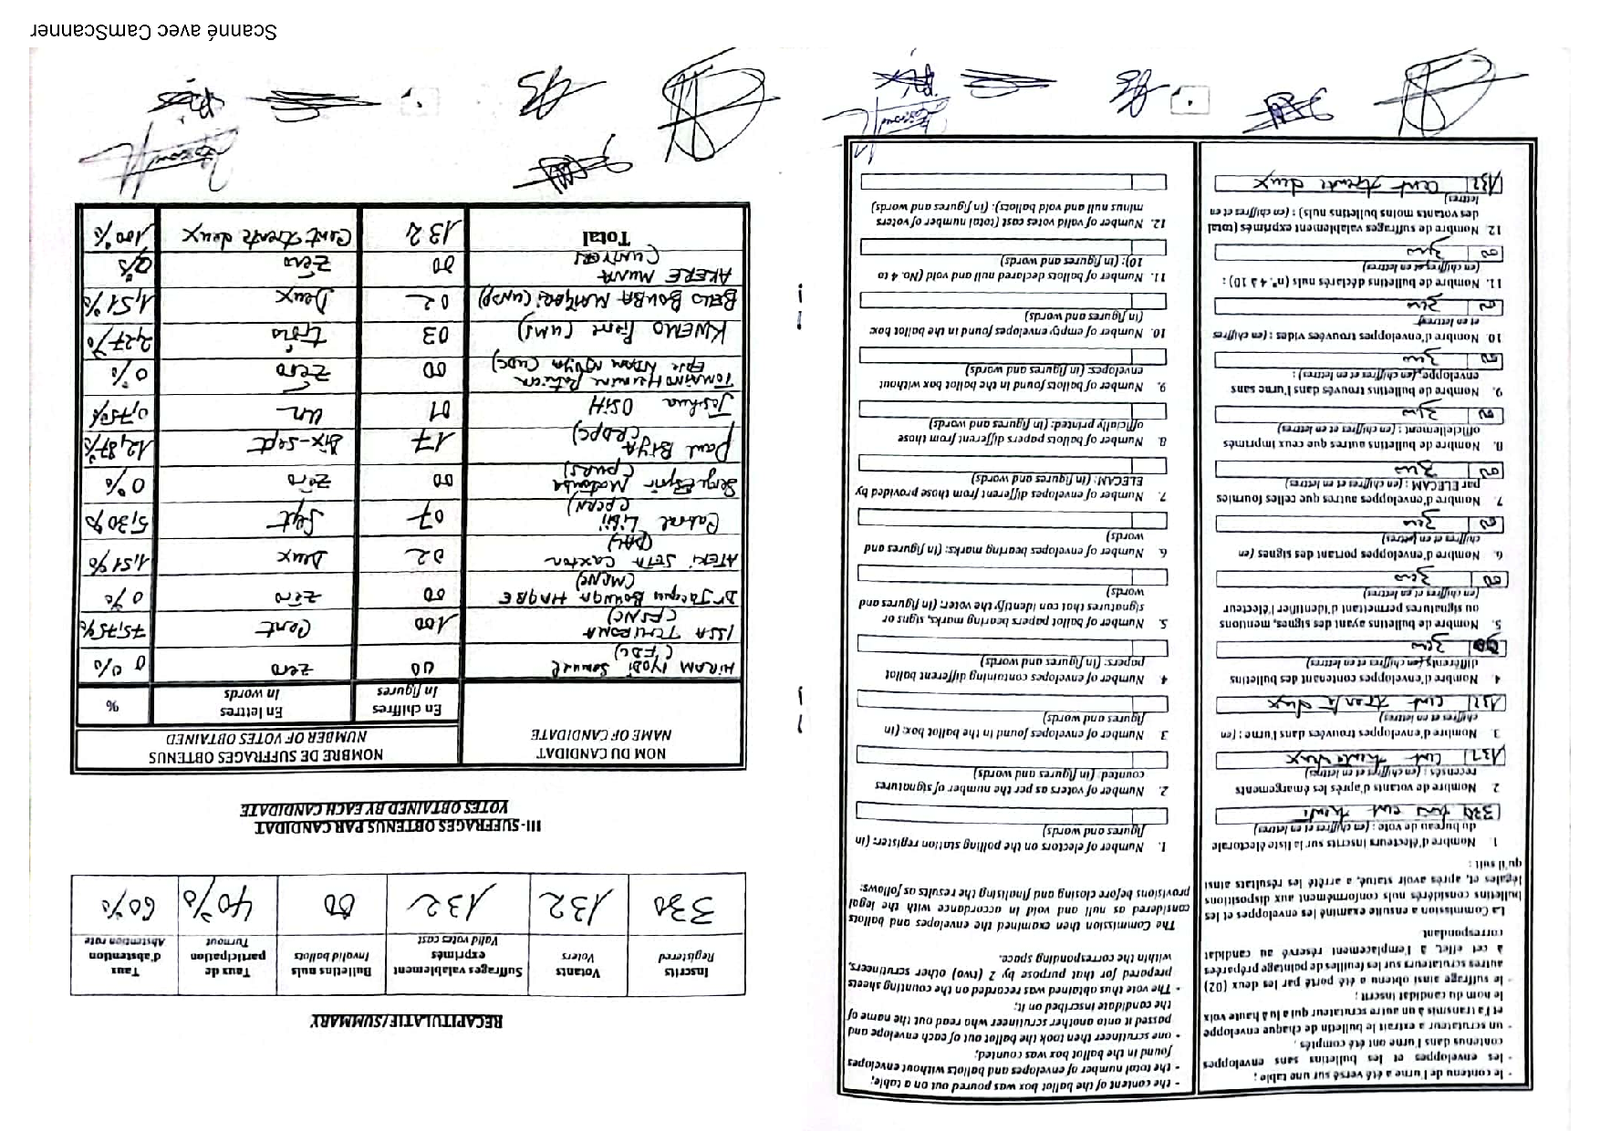 - le contenu de l'urne a été versé sur une table ;
- les enveloppes et les bulletins sans enveloppes
contenus dans l'urne ont été comptés.
- un scrutateur a extrait le bulletin de chaque enveloppe
et l'a transmis à un autre scrutateur qui a lu à haute voix
le nom du candidat inscrit ;
- le suffrage ainsi obtenu a été porté par les deux (02)
autres scrutateurs sur les feuilles de pointage préparées
à cet effet, à l'emplacement réservé au candidat
correspondant
La Commission a ensuite examiné les enveloppes et les
bulletins considérés nuls conformément aux dispositions
légales et, après avoir statué, a arrêté les résultats ainsi
qu'il suit :
1. Nombre d'électeurs inscrits sur la liste électorale
du bureau de vote : (en chiffres et en lettres)
330 trois cent trente
2 Nombre de votants d'après les émargements
recensés : (en chiffres et en lettres)
132 cent trente deux
3. Nombre d'enveloppes trouvées dans l'urne : (en
chiffres et en lettres)
132 cent trente deux
4. Nombre d'enveloppes contenant des bulletins
différents (en chiffres et en lettres)
00 Zero
5. Nombre de bulletins ayant des signes, mentions
ou signatures permettant d'identifier l'électeur
(en chiffres et en lettres)
00 Zero
6. Nombre d'enveloppes portant des signes (en
chiffres et en lettres)
00 Zero
7 Nombre d'enveloppes autres que celles fournies
par ELECAM : (en chiffres et en lettres)
00 Zero
8. Nombre de bulletins autres que ceux imprimés
officiellement : (en chiffres et en lettres)
00 Zero
9. Nombre de bulletins trouvés dans l'urne sans
enveloppe, (en chiffres et en lettres) :
00 Zero
10 Nombre d'enveloppes trouvées vides : (en chiffres
et en lettres)
00 Zero
11. Nombre de bulletins déclarés nuls (n°. 4 à 10) :
(en chiffres et en lettres)
00 Zero
12. Nombre de suffrages valablement exprimés (total
des votants moins bulletins nuls) : (en chiffres et en
lettres)
132 Cent trente deux
- the content of the ballot box was poured out on a table;
- the total number of envelopes and ballots without envelopes
found in the ballot box was counted;
- one scrutineer then took the ballot out of each envelope and
passed it onto another scrutineer who read out the name of
the candidate inscribed on it;
- The vote thus obtained was recorded on the counting sheets
prepared for that purpose by 2 (two) other scrutineers,
within the corresponding space.
The Commission then examined the envelopes and ballots
considered as null and void in accordance with the legal
provisions before closing and finalising the results as follows:
1. Number of electors on the polling station register: (in
figures and words)
2. Number of voters as per the number of signatures
counted: (in figures and words)
3 Number of envelopes found in the ballot box: (in
figures and words)
4 Number of envelopes containing different ballot
papers: (in figures and words)
5. Number of ballot papers bearing marks, signs or
signatures that can identify the voter: (in figures and
words)
6. Number of envelopes bearing marks: (in figures and
words)
7. Number of envelopes different from those provided by
ELECAM: (in figures and words)
8 Number of ballot papers different from those
officially printed: (in figures and words)
9. Number of ballots found in the ballot box without
envelopes: (in figures and words)
10. Number of empty envelopes found in the ballot box:
(in figures and words)
11. Number of ballots declared null and void (No. 4 to
10): (in figures and words)
12. Number of valid votes cast (total number of voters
minus null and void ballots): (in figures and words)
RECAPITULATIF/SUMMARY
Inscrits Registered | Votants Voters | Suffrages valablement exprimés Valid votes cast | Bulletins nuls Invalid ballots | Taux de participation Turnout | Taux d'abstention Abstention rate
330 | 132 | 132 | 00 | 40% | 60%
III- SUFFRAGES OBTENUS PAR CANDIDAT
VOTES OBTAINED BY EACH CANDIDATE
NOM DU CANDIDAT NAME OF CANDIDATE | NOMBRE DE SUFFRAGES OBTENUS NUMBER OF VOTES OBTAINED
En chiffres In figures | En lettres In words | %
HIRAM IYODI Samuel (FDC) | 00 | zero | 0%
ISSA TCHIROMA (FSNC) | 100 | Cent | 75,75%
Dr Jacques BOUNGA HAGBE (MCNC) | 00 | zéro | 0%
ATEKI SETA CAXTON (PAL) | 02 | Deux | 1,51%
Cabral Libii (PCRN) | 07 | Sept | 5,30%
Serge Espoir Matomba (PURS) | 00 | Zéro | 0%
Paul BIYA (RDPC) | 17 | Dix-sept | 12,87%
Joshua OSIH | 01 | Un | 0,75%
TOMAINO Hermine Patricia Epse NDAM NJOYA (UDC) | 00 | Zéro | 0%
KWEMO Pierre (UMS) | 03 | trois | 2,27%
BELLO BOUBA MAIGARI (UNDP) | 02 | Deux | 1,51%
AKERE MUNA (UNIVERS) | 00 | Zéro | 0%
Total | 132 | Cent trente deux | 100%
Scanné avec CamScanner